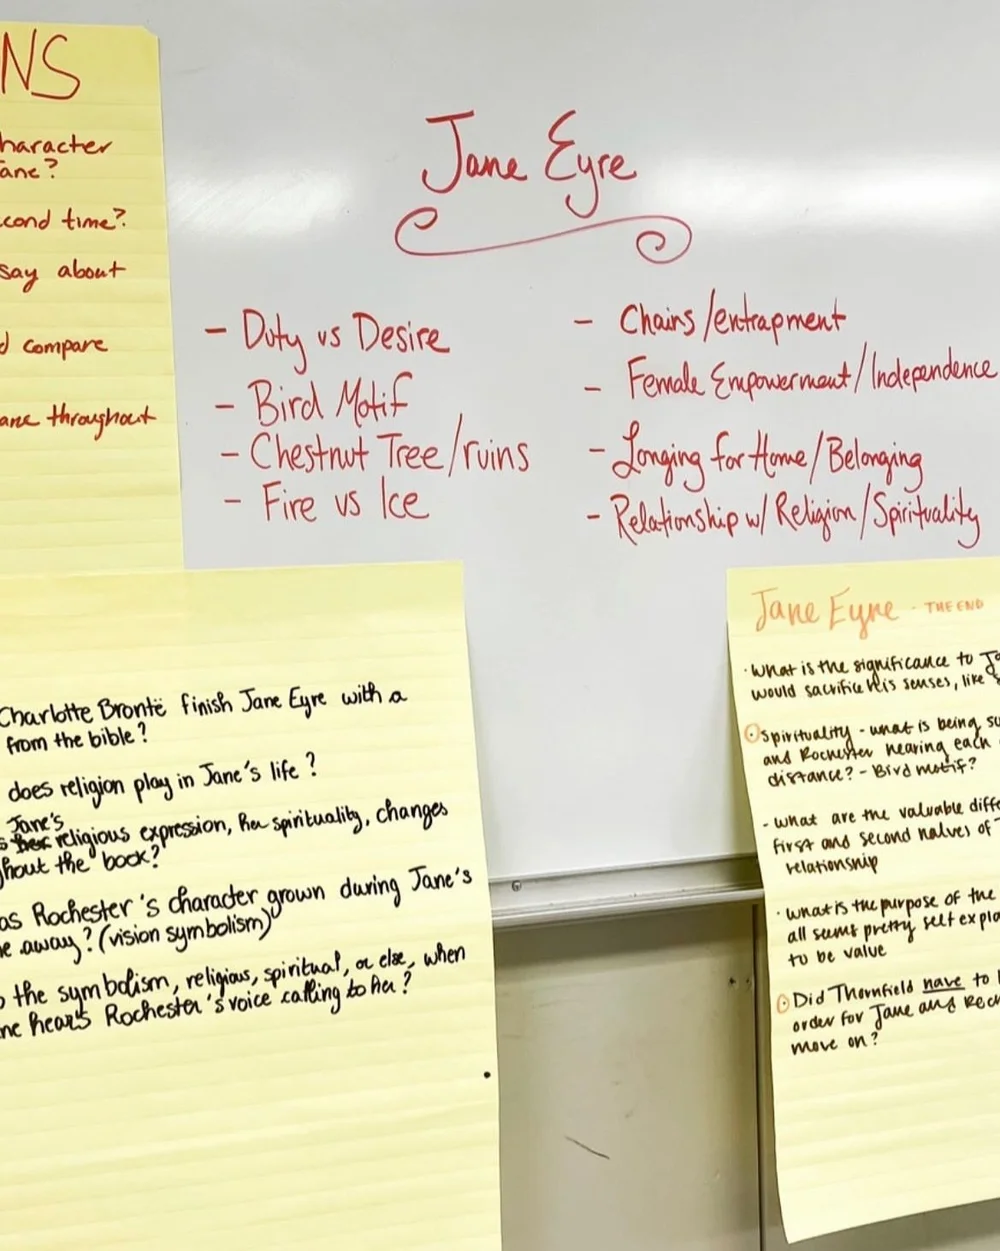 NS
haracter
ane?
cond time?
say about
d compare
ane throughout
Jane Eyre
- Duty vs Desire
- Bird Motif
- Chestnut Tree/ruins
- Fire vs Ice
- Chains/entrapment
- Female Empowerment/Independence
- Longing for Home/Belonging
- Relationship w/ Religion/Spirituality
Charlotte Brontë finish Jane Eyre with a
from the bible?
does religion play in Jane's life?
Jane's
s her religious expression, her spirituality, changes
ghout the book?
as Rochester's character grown during Jane's
e away? (vision symbolism)
the symbolism, religious, spiritual, or else, when
ne hears Rochester's voice calling to her?
Jane Eyre - THE END
· What is the significance to Ja
would sacrifice his senses, like s
Spirituality - what is being su
and Rochester hearing each
distance? - Bird motif?
- what are the valuable diffe
first and second halves of
relationship
· what is the purpose of the
all seems pretty self expla
to be value
Did Thornfield have to
order for Jane and Roch
move on?